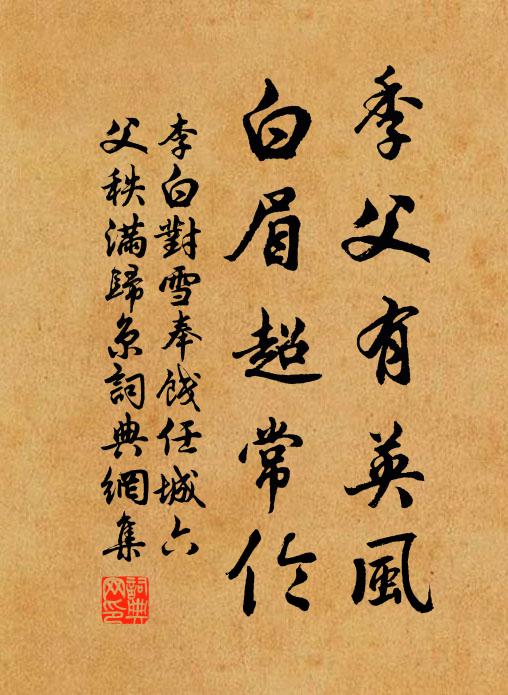 季父有英風
白眉超常伦
李白對雪奉餞任城六
父秩滿歸京詞典網集
詞典
网印